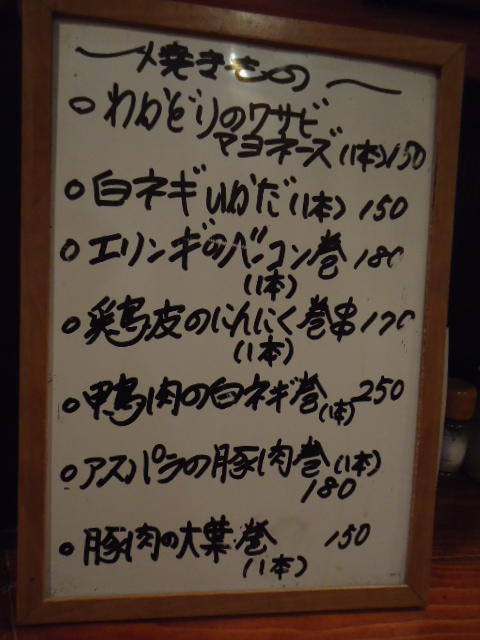 焼きもの
○わかどりのワサビ
マヨネーズ(1本)150
○白ネギいかだ(1本) 150
○エリンギのベーコン巻 180
(1本)
○鶏皮のにんにく巻串 170
(1本)
○鴨肉の白ネギ巻(1本) 250
○アスパラの豚肉巻(1本)
180
○豚肉の大葉巻 150
(1本)